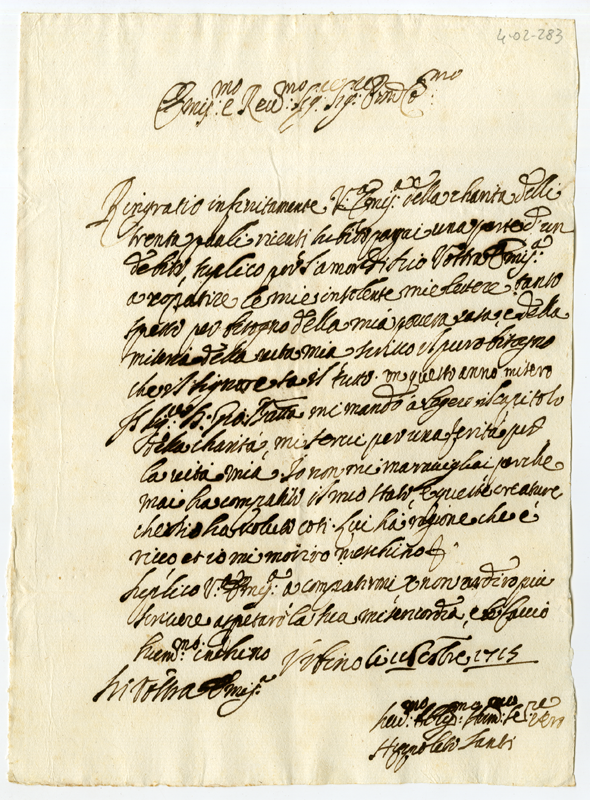 4-02-283
Emi: mo e Reu: mo Sig: Sig: Prnē Co: mo
Ringratio infinitamente V: Emi: a della charità delli
trenta paoli riceuti subito pagai una parte d'un
debito, suplico per l'amor di Dio Vostra Emi: a
a compatire le mie insolente mie lettere tanto
spesso per bisogno della mia povera casa, e della
miseria della uita mia scriuo il puro bisogno
che il Signore sa il tutto. in questo anno misero
il Sig: D: Gio: Batta mi mandò a legere il capitolo
della charità, mi servì per una ferita per
la uita mia Io non mi marauigliai perche
mai ha compatito il mio stato, e quelle creature
che Dio ha uoluto così. Lui ha ragione che è
ricco et io mi moriro meschino
suplico V: Emi: a compatirmi e non ardiro piu
scriuere aspetarò la sua misericordia, e li faccio
hum: mo inchino Urbino li Settre, 1715
Di Vostra Emi: a
hum: mo
Santi